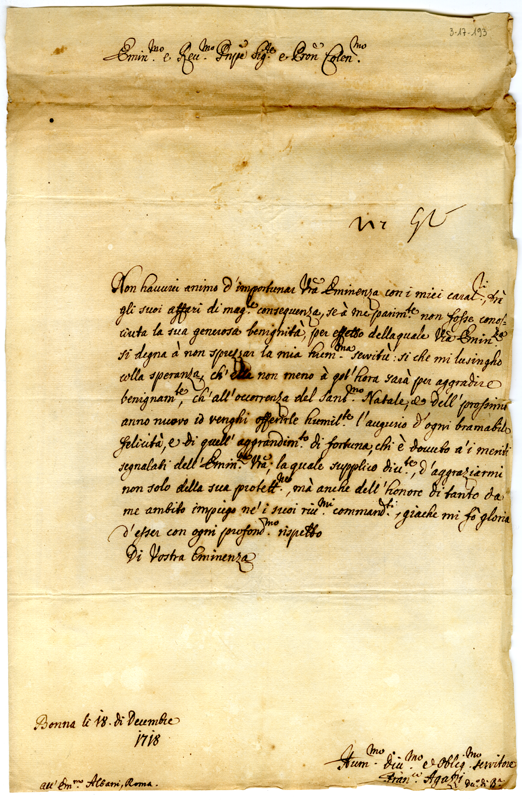 3-17-193
Emin.mo e Rev.mo Pnpe Sig.re e Pron Colen.mo
Non haurei animo d'importunar Vra Eminenza con i miei carat.ri, trà
gli suoi affari di mag.re consequenza, se à me parim.te non fosse cono-
sciuta la sua generosa benignità, per effetto della quale Vra Emin.za
si degna à non sprezzar la mia hum.ma servitù: si che mi lusingho
colla speranza, ch'ella non meno à qst'hora sarà per aggradire
benignam.te, ch'all'occorrenza del Sant.mo Natale, e dell'prossimo
anno nuovo io venghi offerirle humil.te l'augurio d'ogni bramabile
felicità, e di quell'aggrandim.to di fortuna, ch'è dovuto a i meriti
segnalati dell'Emin.za Vra, la quale supplico div.te, d'aggraziarmi
non solo della sua protett.ne, mà anche dell'honore di tanto da
me ambito impiego ne' i suoi riv.mi command.ti, giache mi fò gloria
d'esser con ogni profond.mo rispetto
Di Vostra Eminenza
Bonna li 18. di Decembre
1718
Hum.mo Div.mo et Obleg.mo servitore
Fran.co
all' Em.mo Albani, Roma.